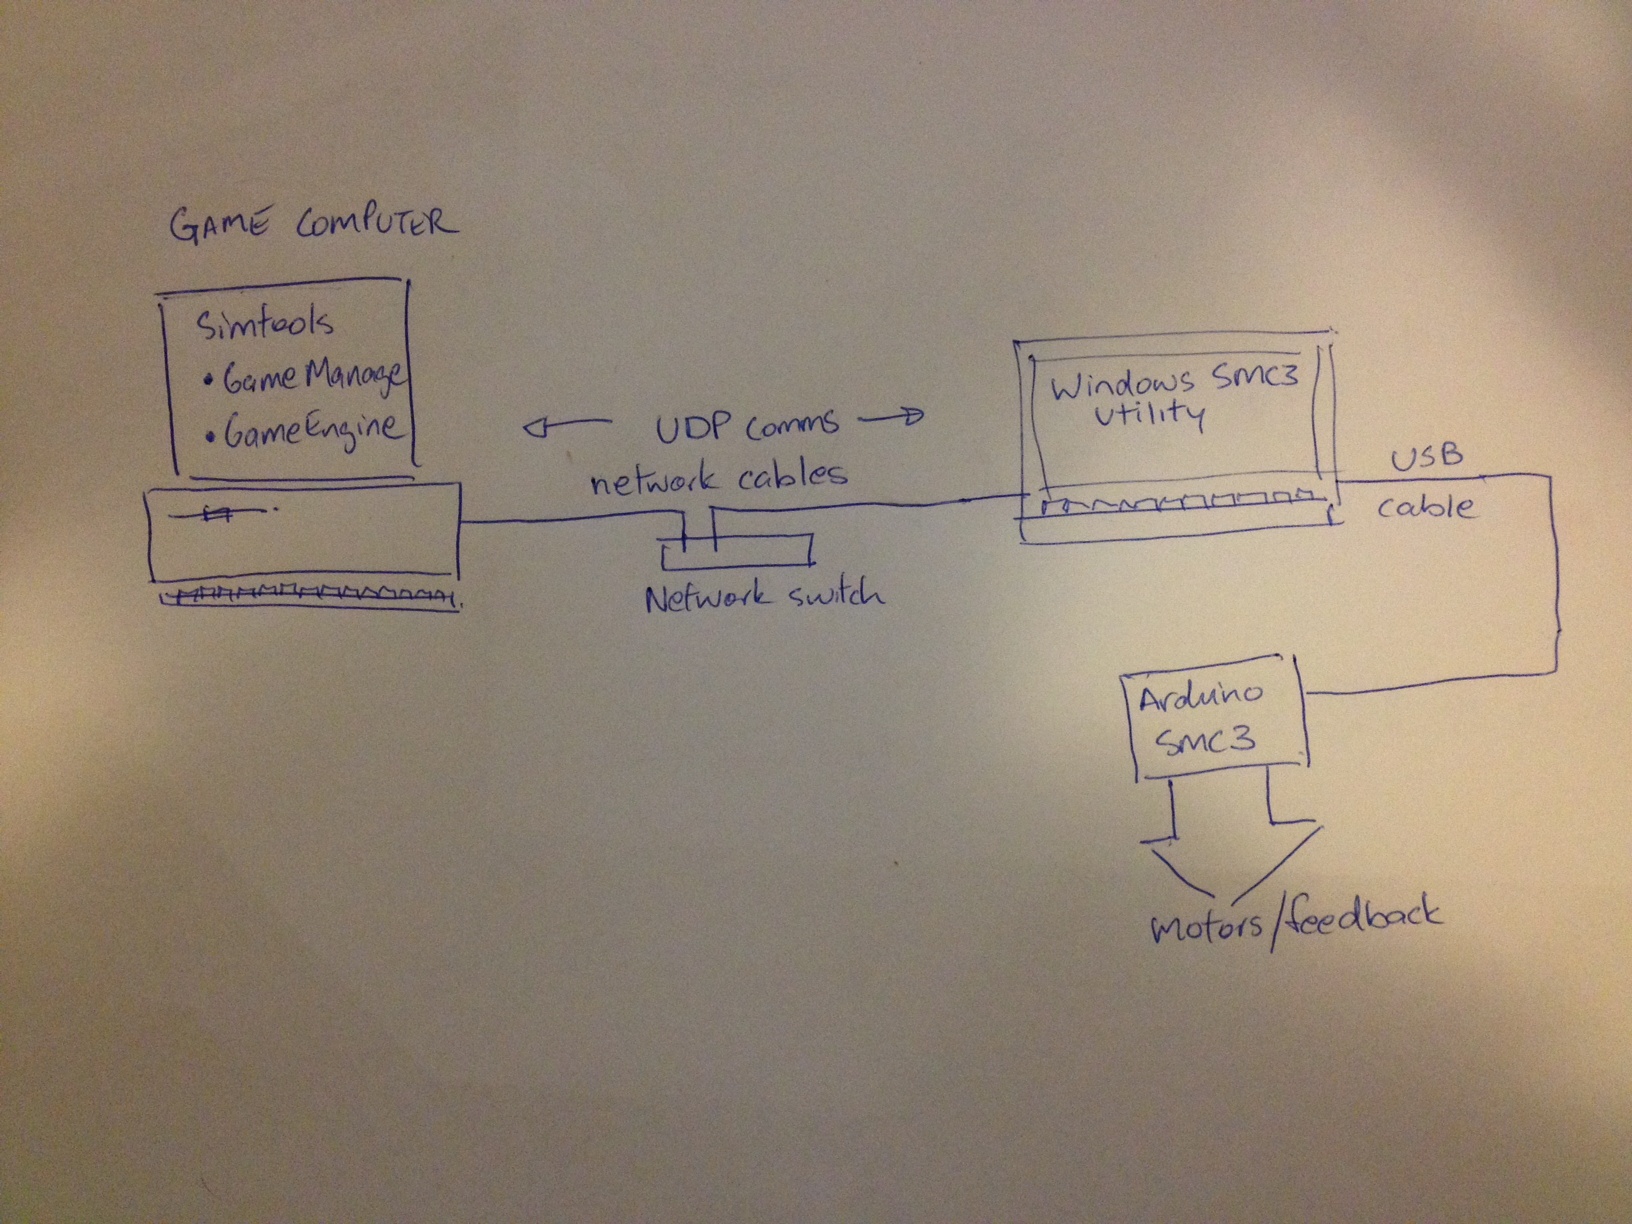 GAME COMPUTER
Simtools
• GameManage
• GameEngine
UDP comms
network cables
Network switch
Windows SMC3
utility
USB
cable
Arduino
SMC3
motors/feedback